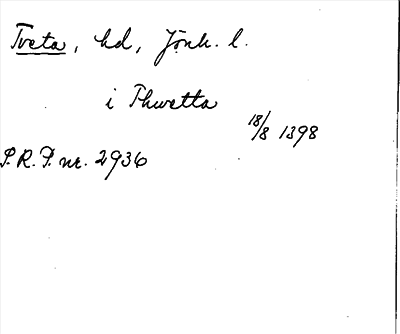 Tveta, hd, Jönk. l.
i Thwetta
18/8 1398
P.R.P. nr. 2936